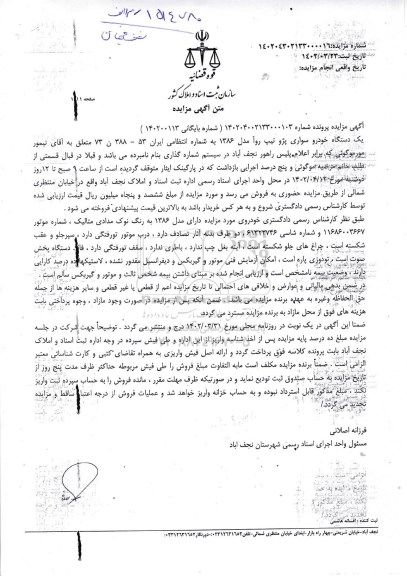 شماره مزایده: ۱۴۰۲۰۴۳۰۲۱۳۳۰۰۰۰۱۶
تاریخ ثبت: ۱۴۰۲/۰۳/۲۳
تاریخ واقعی انجام مزایده:
قوه قضائیه
سازمان ثبت اسناد و املاک کشور
صفحه ۱ از ۱
متن آگهی مزایده
آگهی مزایده پرونده شماره ۱۴۰۲۰۴۰۰۲۱۳۳۰۰۰۱۰۳ (شماره بایگانی ۱۴۰۲۰۰۱۱۳)
یک دستگاه خودرو سواری پژو تیپ روآ مدل ۱۳۸۶ به شماره انتظامی ایران ۵۳ – ۳۸۸ ن ۷۳ متعلق به آقای تیمور
که برابر اعلام پلیس راهور نجف آباد در سیستم شماره گذاری بنام نامبرده می باشد و قبلا در قبال قسمتی از
موگوئی و پنج درصد اجرایی بازداشت که در پارکینگ ایثار متوقف گردیده است از ساعت ۹ صبح تا ۱۲ روز
دوشنبه مورخ ۱۴۰۲/۰۴/۱۲ در محل واحد اجرای اسناد رسمی اداره ثبت اسناد و املاک نجف آباد واقع در خیابان منتظری
شمالی از طریق مزایده حضوری به فروش می رسد و مورد مزایده از مبلغ ششصد و پنجاه میلیون ریال قیمت ارزیابی شده
توسط کارشناس رسمی دادگستری شروع و به هر کس خریدار باشد به بالاترین قیمت پیشنهادی فروخته می شود.
طبق نظر کارشناس رسمی دادگستری خودروی مورد مزایده دارای مدل ۱۳۸۶ به رنگ نوک مدادی متالیک ، شماره موتور
۱۱۶۸۶۰۰۳۶۶۷ و شماره شاسی ۶۱۳۲۳۷۳۶ ، دو طرف بدنه آثار تصادف دارد ، درب موتور تورفتگی دارد ، سپرجلو و عقب
شکسته است ، چراغ های جلو شکسته است ، آینه بغل چپ ندارد ، باطری ندارد ، سقف تورفتگی دارد ، فاقد دستگاه پخش
صوت است ، تودوزی پاره است ، امکان آزمایش فنی موتور و گیربکس و دیفرانسیل مقدور نشده ، لاستیکها ده درصد کارایی
دارند ، وضعیت بیمه نامشخص است و ارزیابی انجام شده بر مبنای داشتن بیمه شخص ثالث و موتور و گیربکس سالم است .
در ضمن بدهی مالیاتی و عوارض و خلافی های احتمالی تا تاریخ مزایده اعم از قطعی یا غیر قطعی و سایر هزینه ها از جمله
حق الحفاظه وغیره به عهده برنده مزایده می باشد . ضمن آنکه پس از مزایده در صورت وجود مازاد ، وجوه پرداختی بابت
هزینه های فوق از محل مازاد به برنده مزایده مسترد می گردد.
ضمنا این آگهی در یک نوبت در روزنامه محلی مورخ ۱۴۰۲/۰۳/۳۱ درج و منتشر می گردد . توضیحاً جهت شرکت در جلسه
مزایده مبلغ ده درصد پایه مزایده پس از اخذ شناسه واریز از این اداره و طی فیش سپرده در وجه اداره ثبت اسناد و املاک
نجف آباد بابت پرونده کلاسه فوق پرداخت گردد و ارائه اصل فیش واریزی به همراه تقاضای کتبی و کارت شناسائی معتبر
الزامی است . ضمناً برنده مزایده مکلف است مابه التفاوت مبلغ فروش را طی فیش مربوطه حداکثر ظرف مدت پنج روز از
تاریخ مزایده به حساب صندوق ثبت تودیع نماید و در صورتیکه ظرف مهلت مقرر ، مانده فروش را به حساب سپرده ثبت واریز
نکند ، مبلغ مذکور قابل استرداد نبوده و به حساب خزانه واریز خواهد شد و عملیات فروش از درجه اعتبار ساقط و مزایده
تجدید می گردد./
فرزانه اصلانی
مسئول واحد اجرای اسناد رسمی شهرستان نجف آباد
ثبت کننده : افسانه هاشمی
نجف آباد، خیابان شریعتی-چهار راه بازار-ابتدای خیابان منتظری شمالی-تلفن: